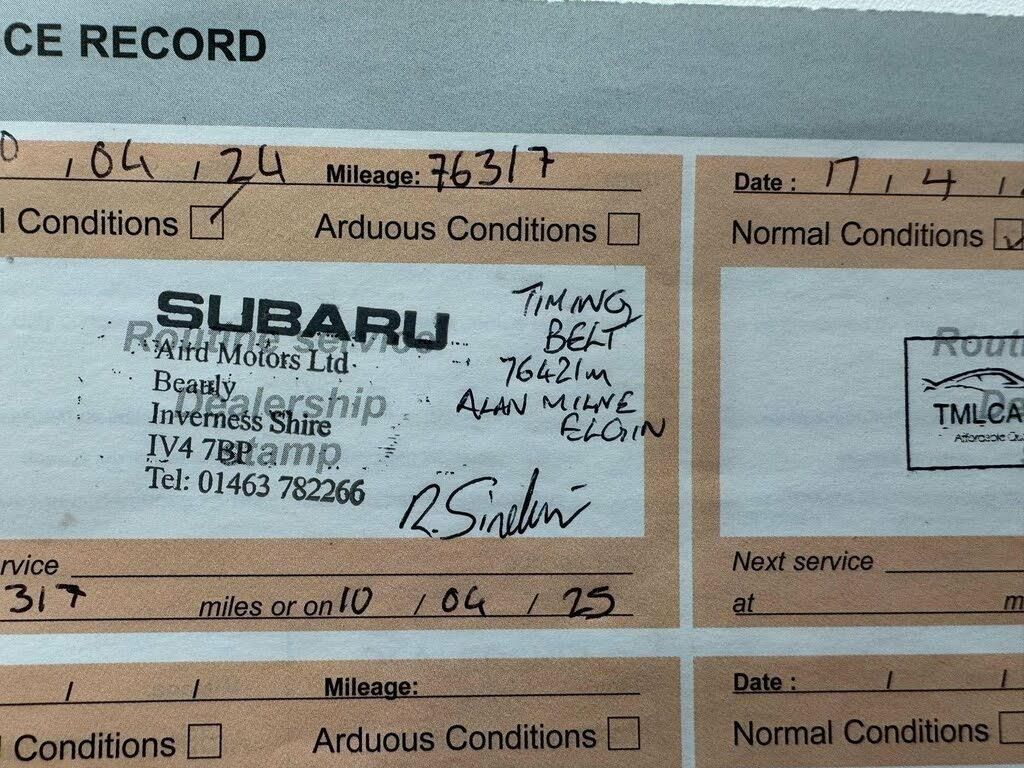 CE RECORD
0 / 04 / 24 Mileage: 76317
l Conditions Arduous Conditions
SUBARU
Routine service
Aird Motors Ltd
Beauly
Dealership
Inverness Shire
stamp
IV4 7BP
Tel: 01463 782266
TIMING
BELT
76421m
ALAN MILNE
ELGIN
rvice
317 miles or on 10 / 04 / 25
/ / Mileage:
l Conditions Arduous Conditions
Date : 17 / 4 /
Normal Conditions
Routi
TMLCA
Next service
at m
Date : / /
Normal Conditions